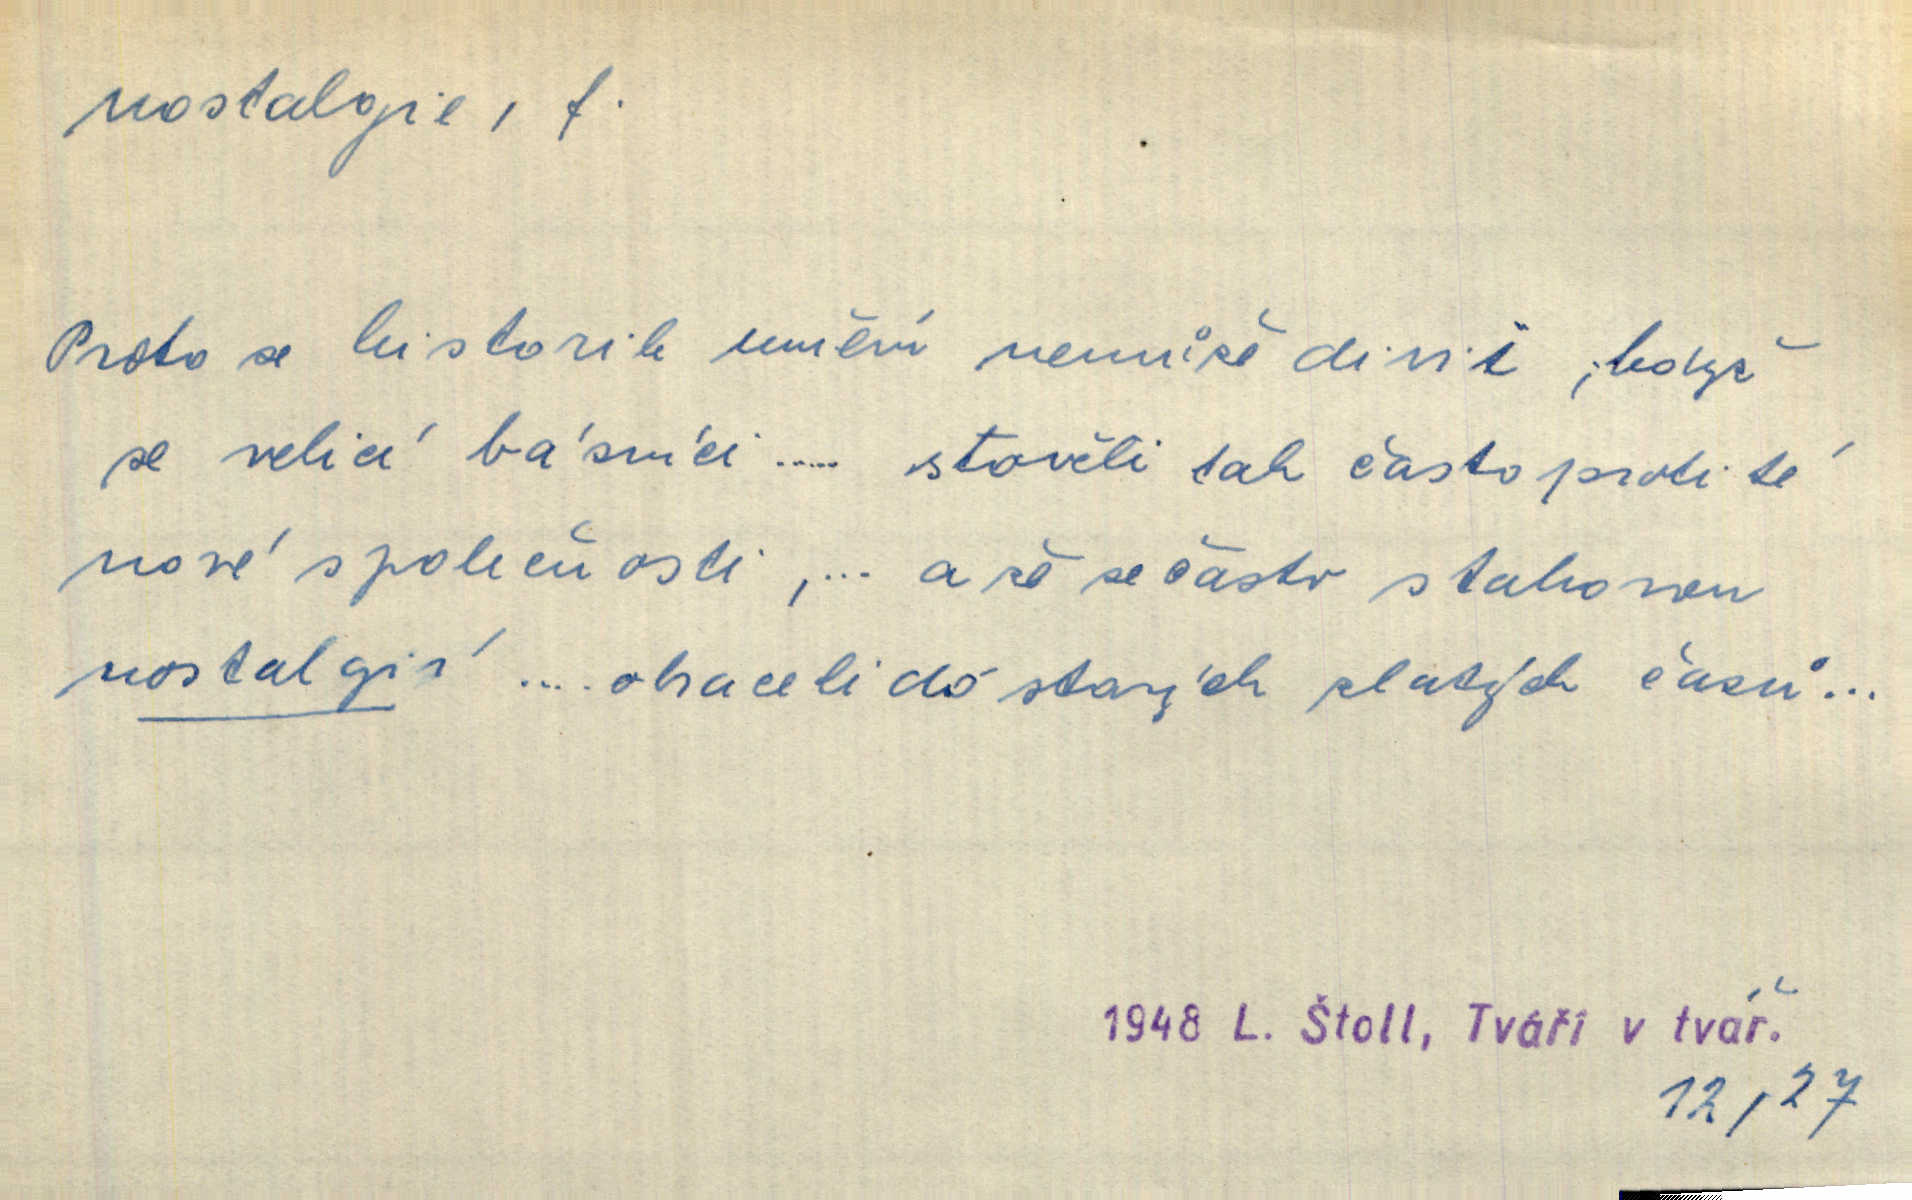 nostalgie, f.
Proto se historik umění nemůže divit, když
se velicí básníci ..... stověli tak často proti té
nové společnosti, ... a že se často s takovou
nostalgií .... obraceli do starých zlatých časů ...
1948 L. Štoll, Tváří v tvář.
12, 27